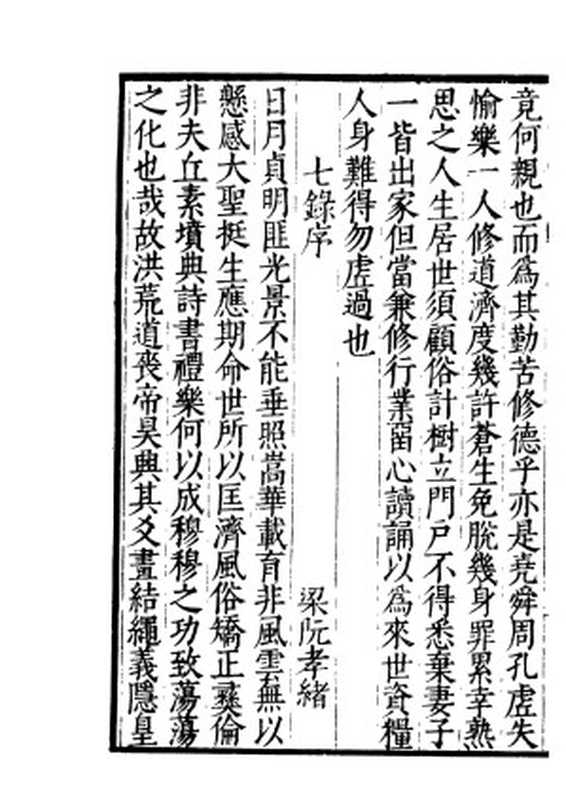 竟何親也而爲其勤苦修德乎亦是堯舜周孔虗失
愉樂一人修道濟度幾許蒼生免脫幾身罪累幸熟
思之人生居世須顧俗計樹立門戶不得悉棄妻子
一皆出家但當兼修行業留心讀誦以爲來世資糧
人身難得勿虗過也
七錄序
梁阮孝緒
日月貞明匪光景不能垂照嵩華載育非風雲無以
懸感大聖挺生應期命世所以匡濟風俗矯正彞倫
非夫丘素墳典詩書禮樂何以成穆穆之功致蕩蕩
之化也哉故洪荒道喪帝昊興其爻畫結繩義隱皇